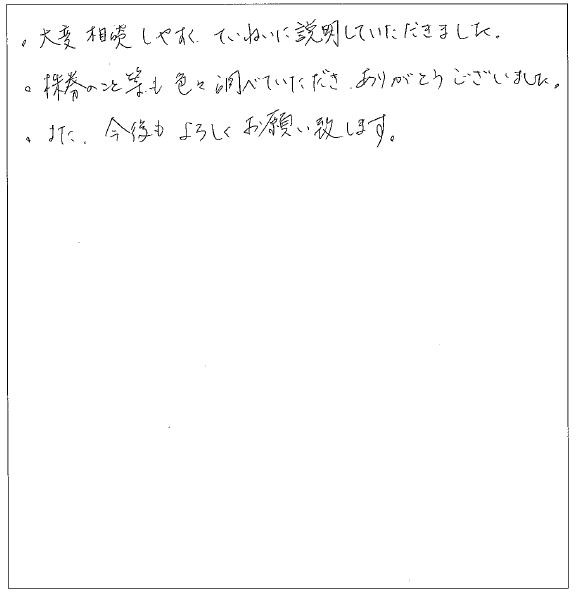 。大変 相談 しやすく ていねいに説明していただきました。
。株券のこと等も 色々調べていただき、ありがとうございました。
。また、今後も よろしく お願い致します。